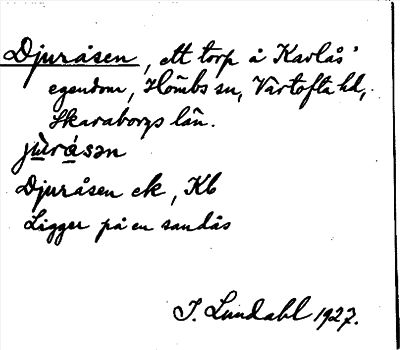 Djuråsen, ett torp å Kavlås'
egendom, Hömbs sn, Vartofta hd,
Skaraborgs län.
jùråsən
Djuråsen ek, Kb
Ligger på en sandås
I. Lundahl 1927.